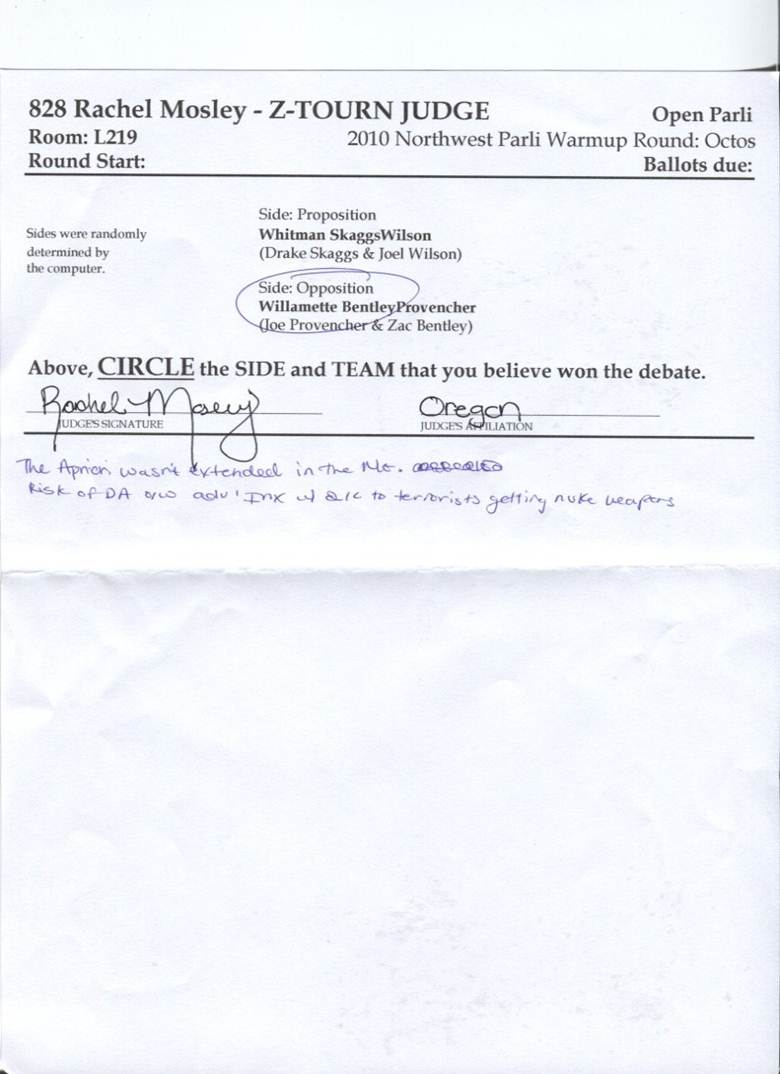 828 Rachel Mosley - Z-TOURN JUDGE Open Parli
Room: L219 2010 Northwest Parli Warmup Round: Octos
Round Start: Ballots due:
Side: Proposition
Sides were randomly Whitman SkaggsWilson
determined by (Drake Skaggs & Joel Wilson)
the computer.
Side: Opposition
Willamette BentleyProvencher
(Joe Provencher & Zac Bentley)
Above, CIRCLE the SIDE and TEAM that you believe won the debate.
Rachel Mosley Oregon
JUDGE'S SIGNATURE JUDGE'S AFFILIATION
The Apriori wasn't extended in the MG.
Risk of DA o/w adv' to terrorists getting nuke weapons